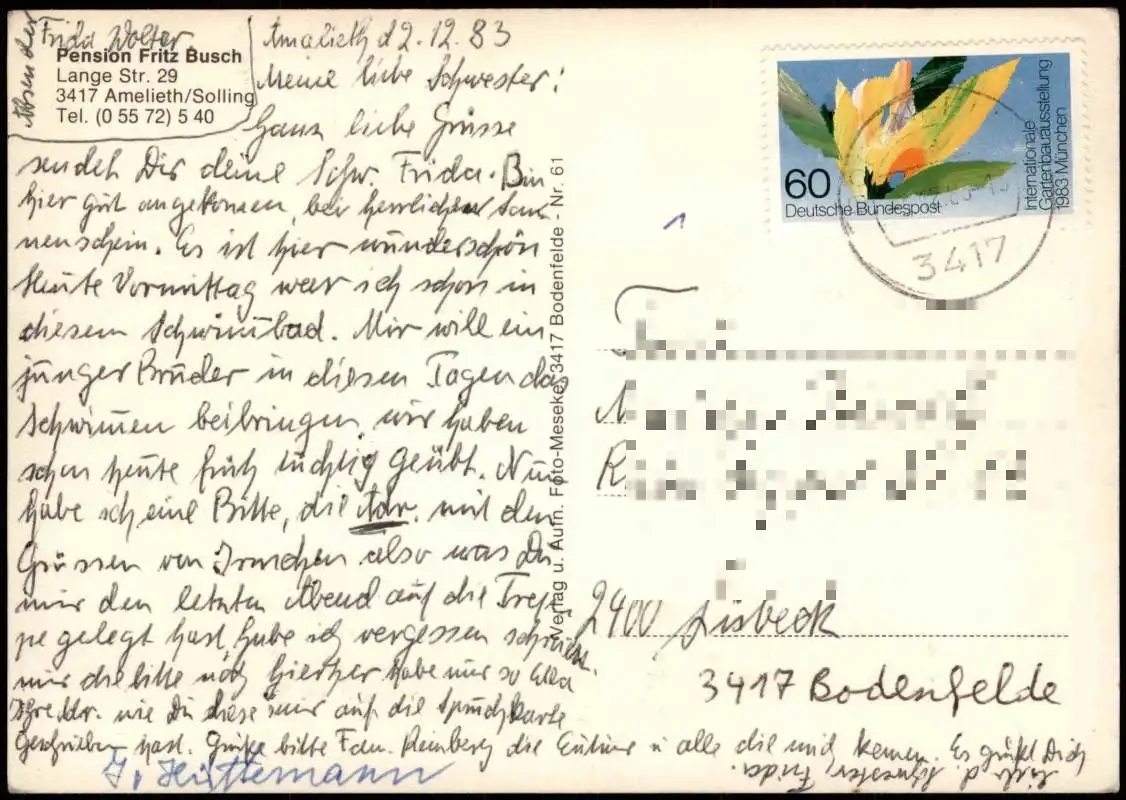 Absender
Frida Wolter
Pension Fritz Busch
Lange Str. 29
3417 Amelieth/Solling
Tel. (0 55 72) 5 40
Amalieth d 2.12.83
Meine liebe Schwester!
Ganz liebe Grüsse
sendet Dir deine Schw. Frida. Bin
hier gut angekommen, bei herrlichen Son
nenschein. Es ist hier wunderschön
Heute Vormittag war ich schon in
diesem Schwimmbad. Mir will ein
junger Bruder in diesen Tagen das
Schwimmen beibringen, wir haben
schon heute früh tüchtig geübt. Nun
habe ich eine Bitte, die Adr. mit den
Grüssen von Irmchen also was Du
mir den letzten Abend auf die Trep
pe gelegt hast, habe ich vergessen
mir die bitte nach hierher habe nur so
Ihre Adr. wie Du diese mir auf die Spruchkarte
Geschrieben hast. Grüße bitte Fam. Reinberg die u alle die mich kennen. Es grüßt Dich
d. Schwester Frida.
Verlag u. Aufn. Foto-Meseke, 3417 Bodenfelde - Nr. 61
60
Deutsche Bundespost
Internationale
Gartenbauausstellung
1983 München
3417
1
2400 Lübeck
3417 Bodenfelde